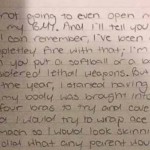 not going to even open m
my BMI. And I'll tell you
I can remember, I've been
pletley fine with that; I'm
you put a softball or a b
sidered lethal weapons. But
the year, I started having
my body was brought into
four bras to try and
I would try to wrap ace
mach so I would look skinn
that any parent